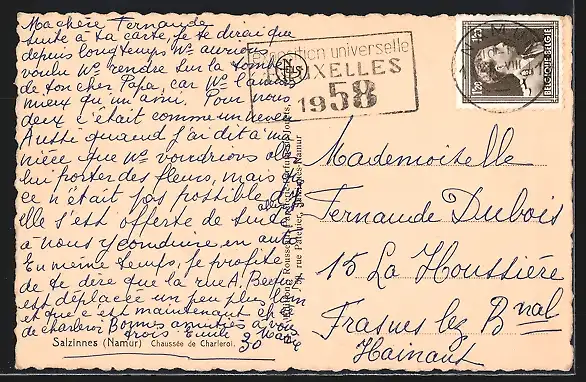 Ma chère Fernande
suite à ta carte, je te dirai que
depuis longtemps Ns aurions
voulu Ns rendre sur la tombe
de ton cher Papa, car Ns l'aimions
mieux qu'un ami. Pour nous
deux c'était comme un neveu
Aussi quand j'ai dit à ma
nièce que Ns voudrions aller
lui porter des fleurs, mais que
ce n'était pas possible
elle s'est offerte de suite
à nous y conduire en auto
En même temps, je profite
de te dire que la rue A.
est déplacée un peu plus loin
et que c'est maintenant
de charleroi Bonnes amitiés à vous
trois Emile
Salzinnes (Namur) Chaussée de Charleroi.
exposition universelle
BRUXELLES
1958
NAMUR
BELGIE-BELGIQUE
Mademoiselle
Fernande Dubois
15 La Houssière
Frasnes lez Bnal
Hainaut